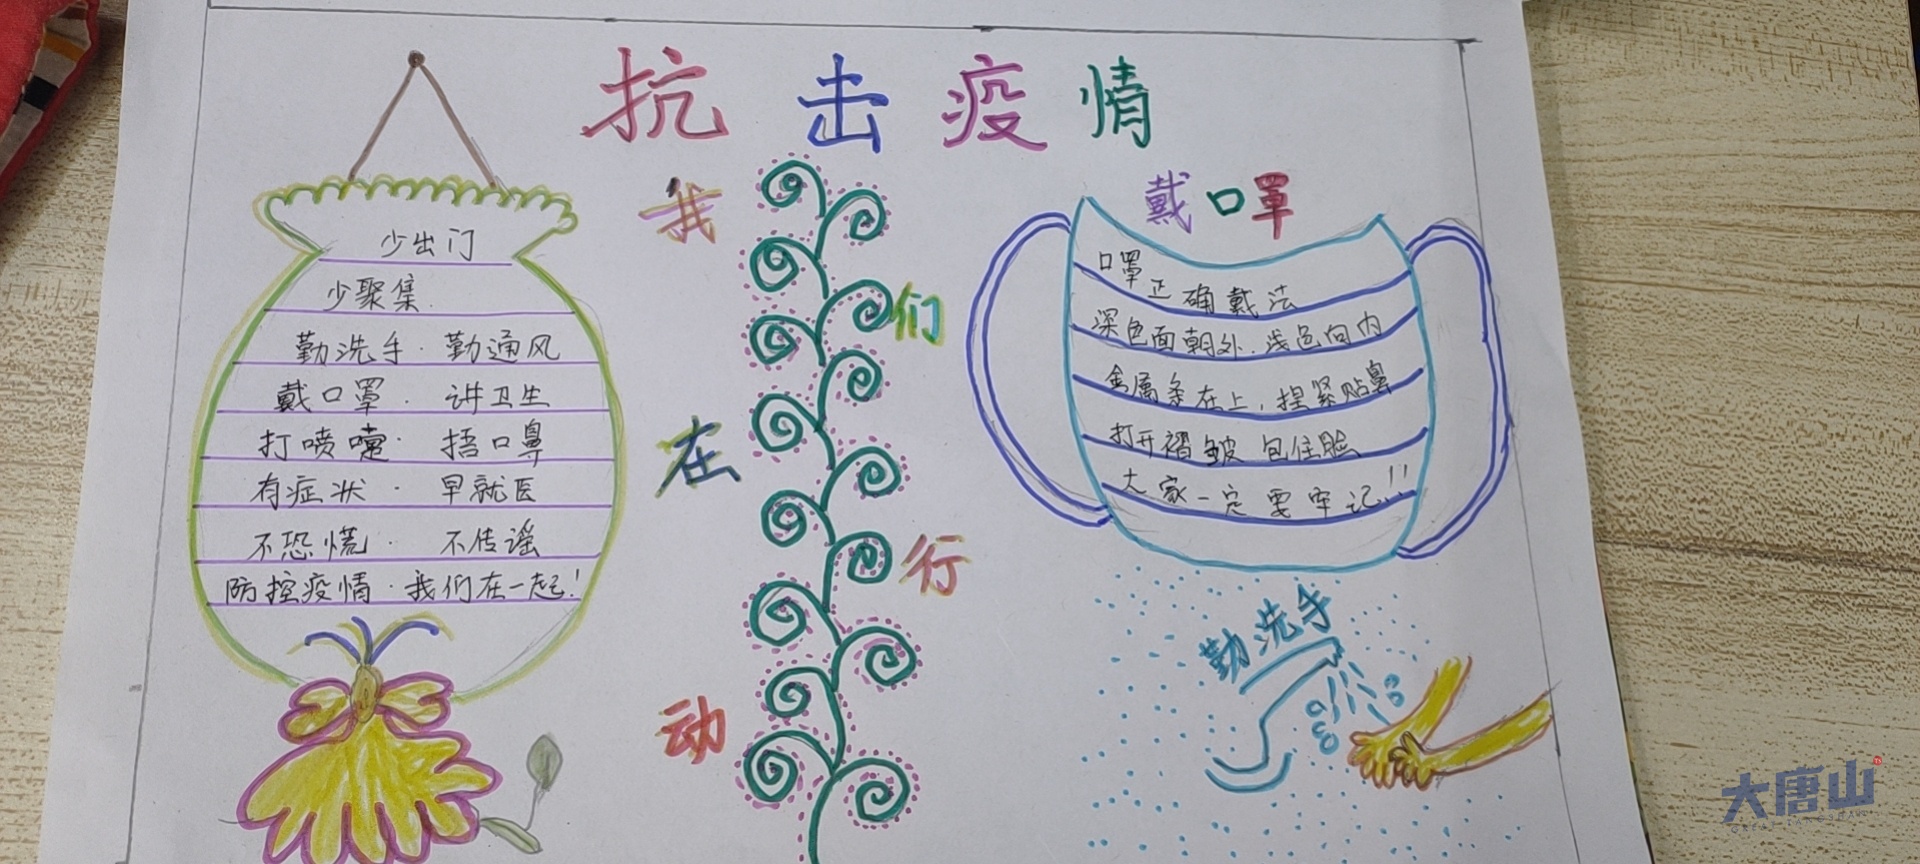 抗击疫情
我们在行动
少出门
少聚集
勤洗手·勤通风
戴口罩·讲卫生
打喷嚏·捂口鼻
有症状·早就医
不恐慌·不传谣
防控疫情·我们在一起!
戴口罩
口罩正确戴法
深色面朝外.浅色向内
金属条在上,捏紧贴鼻
打开褶皱 包住脸
大家一定要牢记!!
勤洗手
大唐山